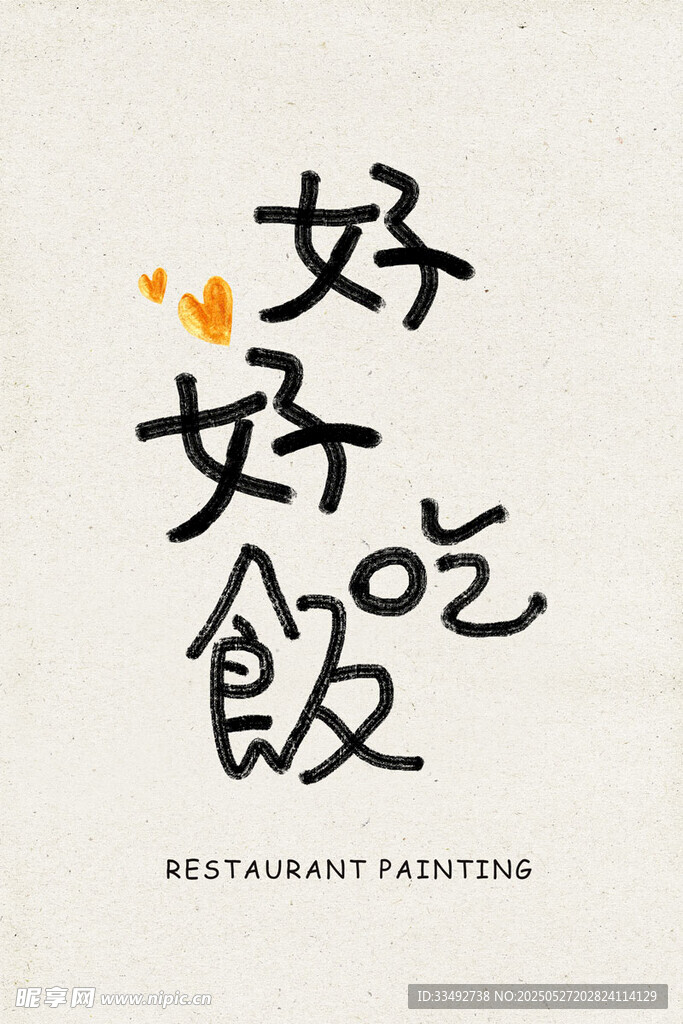 好
好
吃
飯
RESTAURANT PAINTING
昵享网 www.nipic.cn
ID:33492738 NO:20250527202824114129